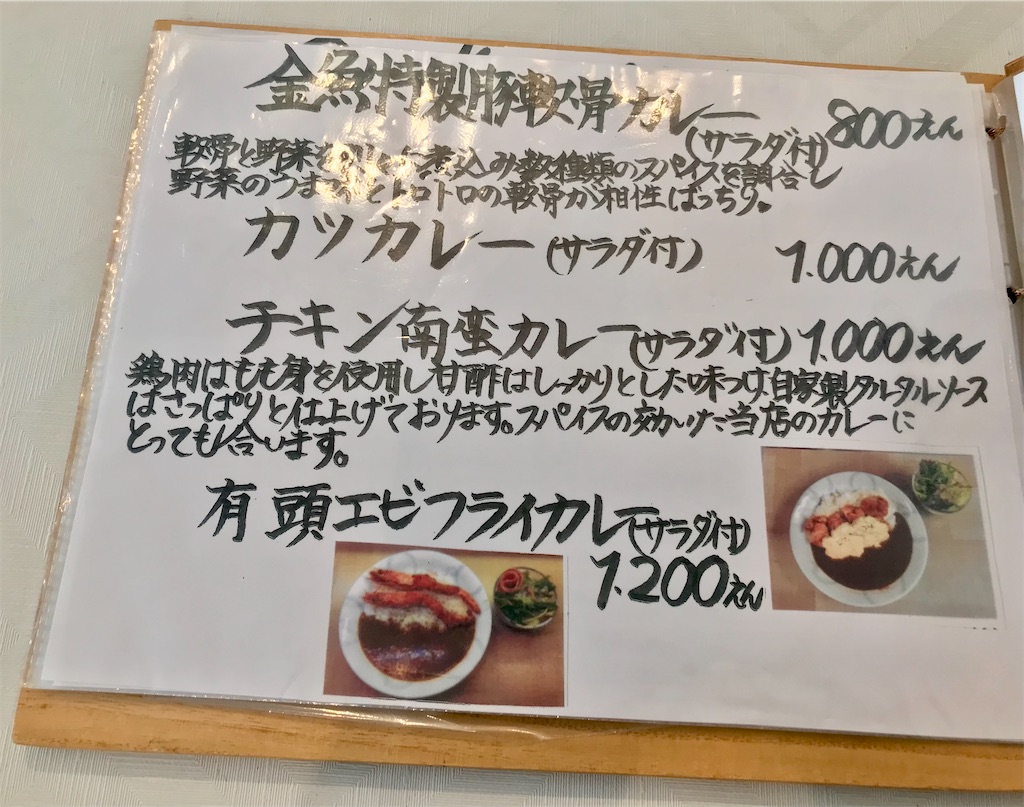 金魚特製豚軟骨カレー 800えん
(サラダ付)
軟骨と野菜を 煮込み数種類のスパイスを調合し
野菜のつま とトロトロの軟骨が相性ばっちり。
カツカレー(サラダ付) 1.000えん
チキン南蛮カレー(サラダ付) 1.000えん
鶏肉はもも身を使用し甘酢はしっかりとした味つけ自家製タルタルソース
はさっぱりと仕上げております。スパイスの効いた当店のカレーに
とっても合います。
有頭エビフライカレー(サラダ付)
1.200えん